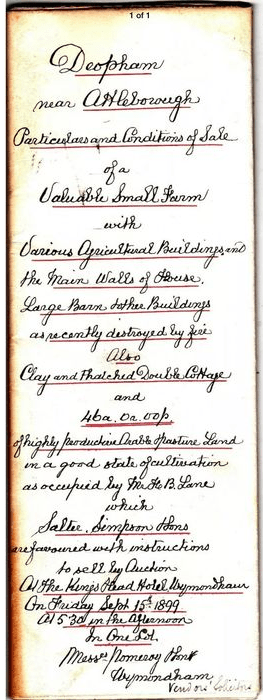 1 of 1
Deopham
near Attleborough
Particulars and Conditions of Sale
of a
Valuable Small Farm
with
Various Agricultural Buildings, and
the Main Walls of House,
Large Barn & other Buildings
as recently destroyed by fire
Also
Clay and Thatched Double Cottage
and
46a. 0r. 00p.
of highly productive Arable & Pasture Land
in a good state of cultivation
as occupied by Mr. H. B. Lane
which
Salter, Simpson & Sons
are favoured with instructions
to sell by Auction
At The King's Head Hotel, Wymondham
On Friday Sept. 15th 1899
At 5.30 in the Afternoon
In One Lot.
Messrs Pomeroy & Son
Wymondham,
Vendors' Solicitors